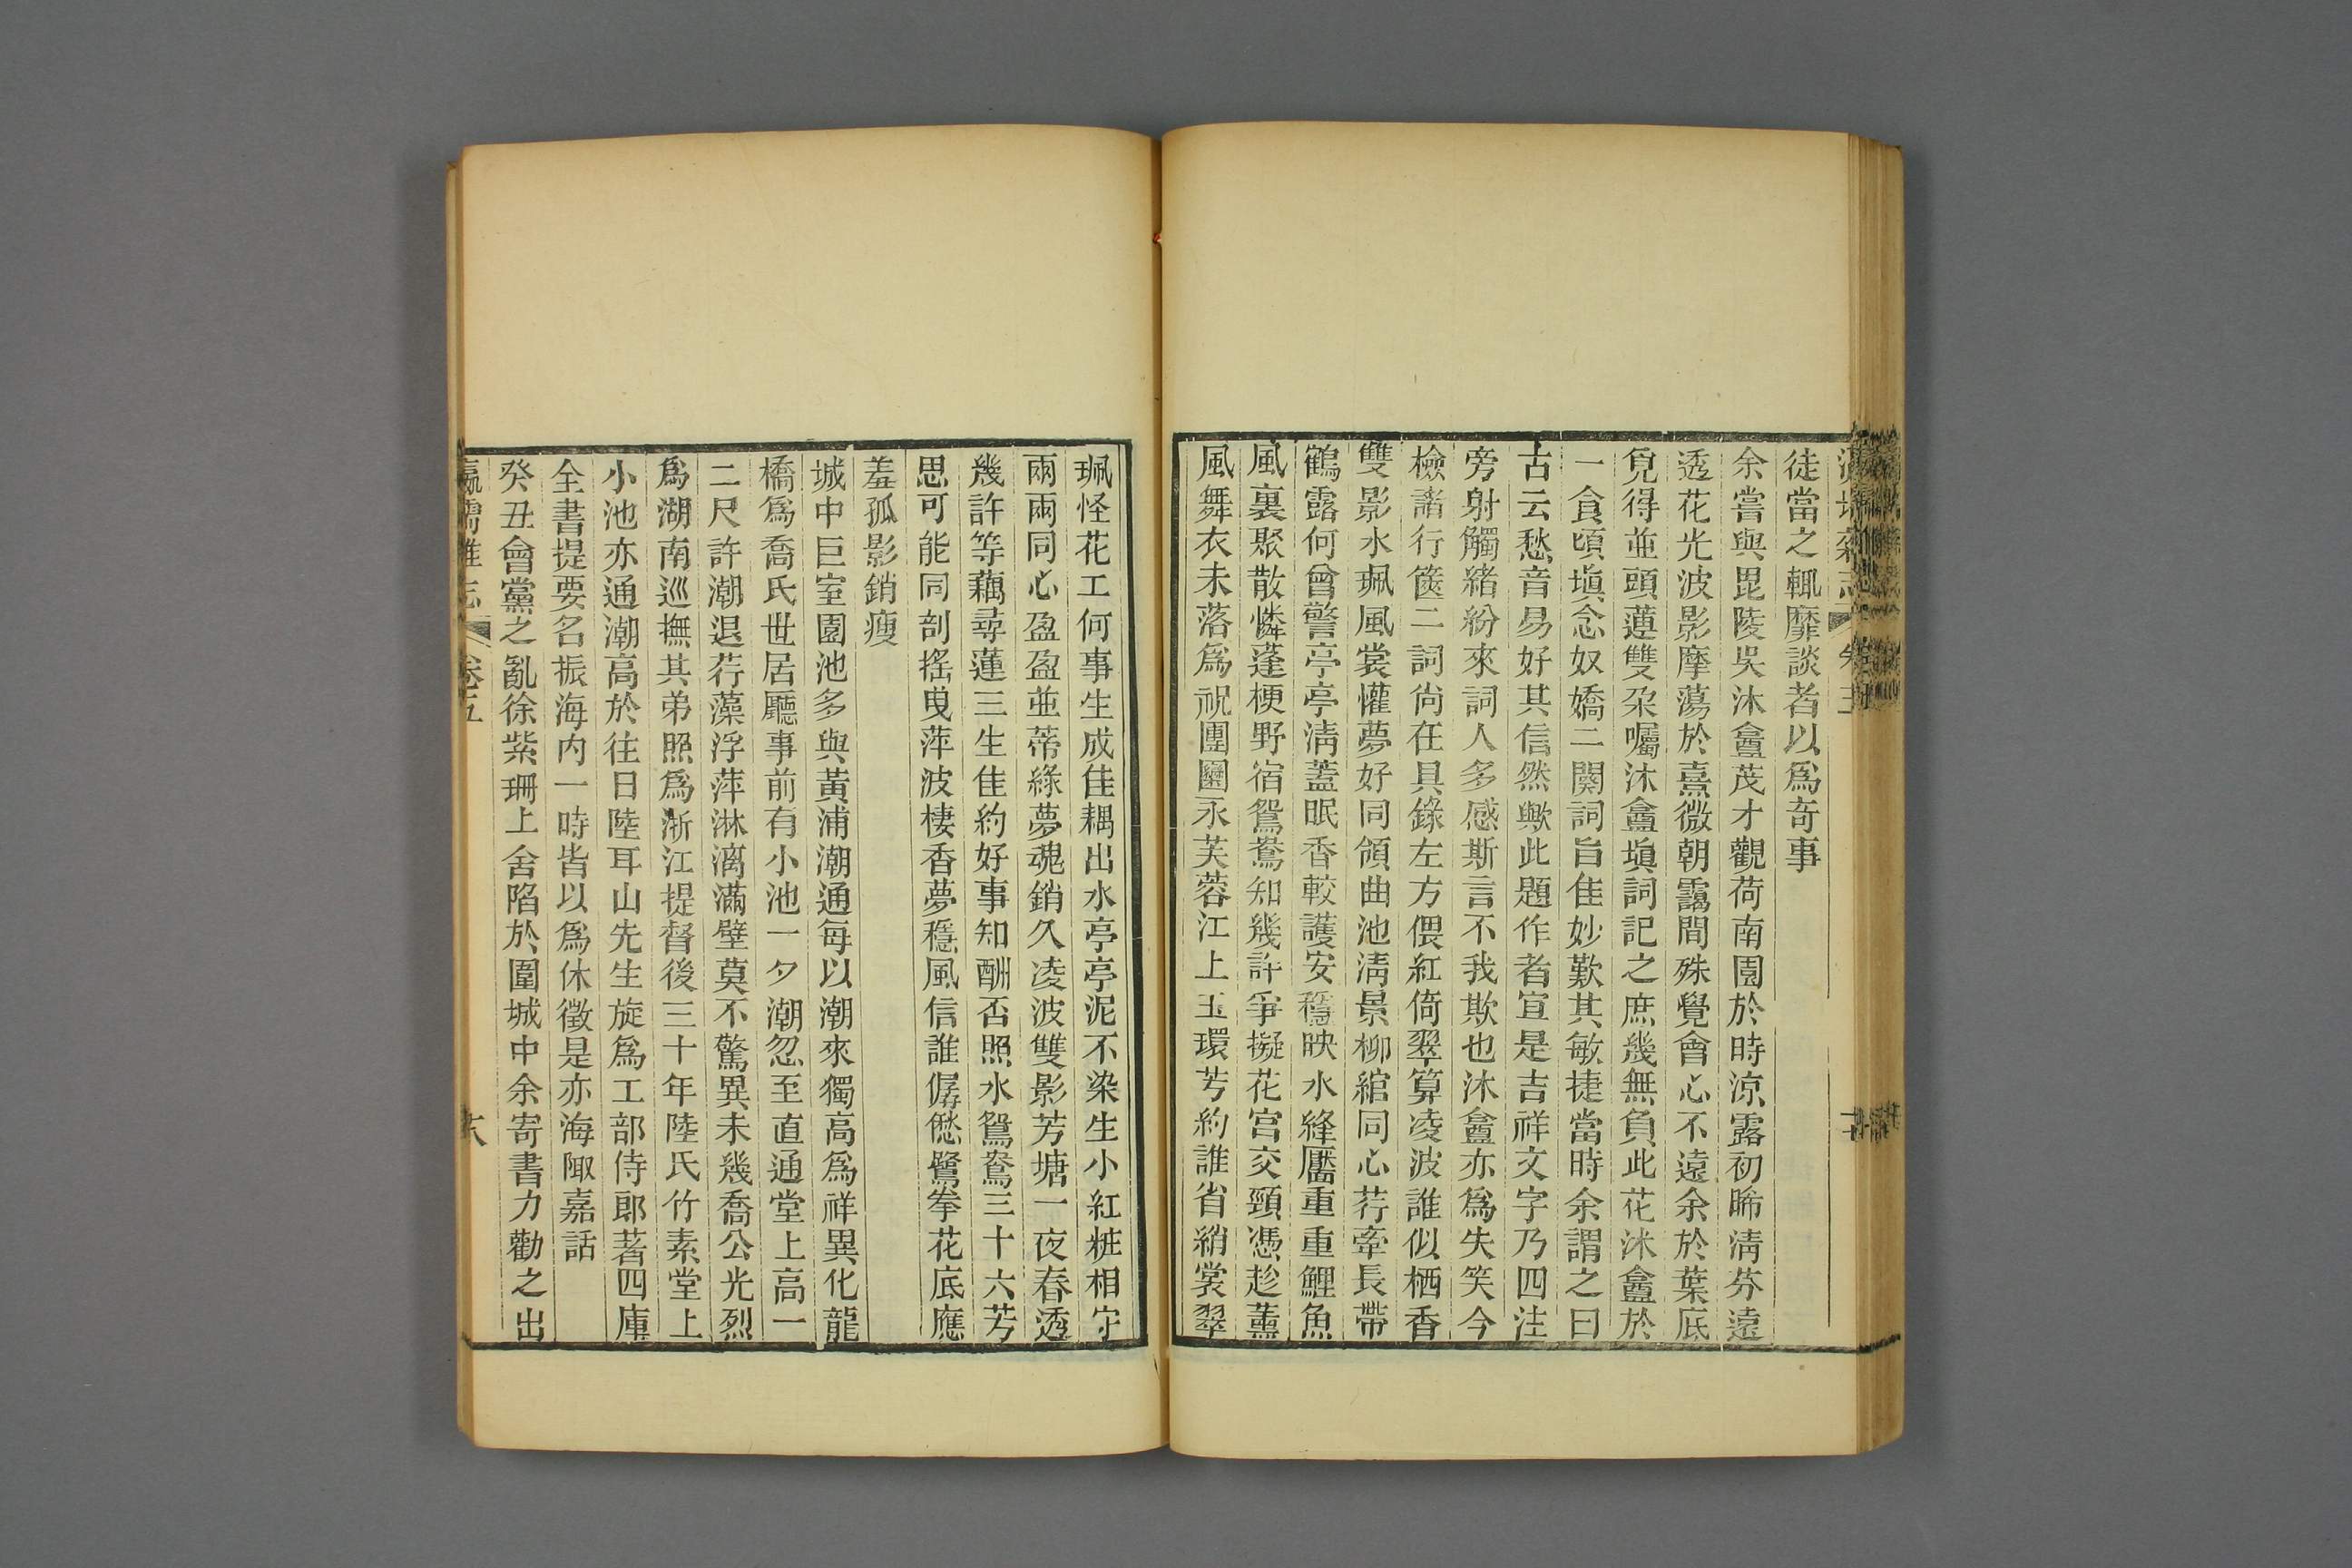 徒當之輒靡談者以爲奇事
余嘗與毘陵吳沐盦茂才觀荷南園於時涼露初晞淸芬遠
透花光波影摩蕩於熹微朝靄間殊覺會心不遠余於葉底
覓得並頭蓮雙朶囑沐盦塡詞記之庶幾無負此花沐盦於
一食頃塡念奴嬌二闋詞旨佳妙歎其敏捷當時余謂之曰
古云愁音易好其信然歟此題作者宜是吉祥文字乃四注
旁射觸緒紛來詞人多感斯言不我欺也沐盦亦爲失笑今
檢諸行篋二詞尙在具錄左方偎紅倚翠算凌波誰似栖香
雙影水珮風裳懽夢好同領曲池淸景柳綰同心荇牽長帶
鶴露何曾警亭亭淸蓋眠香較護安穩映水縫靨重重鯉魚
風裏聚散憐蓬梗野宿鴛鴦知幾許爭擬花宮交頸憑趁薰
風舞衣未落爲祝團圞永芙蓉江上玉環芳約誰省綃裳翠
珮怪花工何事生成佳耦出水亭亭泥不染生小紅粧相守
兩兩同心盈盈並蒂綠夢魂銷久凌波雙影芳塘一夜春透
幾許等藕尋蓮三生佳約好事知酬否照水鴛鴦三十六芳
思可能同剖搖曳萍波棲香夢穩風信誰僝僽鷺拳花底應
羞孤影銷瘦
城中巨室園池多與黃浦潮通每以潮來獨高爲祥異化龍
橋爲喬氏世居廳事前有小池一夕潮忽至直通堂上高一
二尺許潮退荇藻浮萍淋漓滿壁莫不驚異未幾喬公光烈
爲湖南巡撫其弟照爲浙江提督後三十年陸氏竹素堂上
小池亦通潮高於往日陸耳山先生旋爲工部侍郎著四庫
全書提要名振海內一時皆以爲休徵是亦海陬嘉話
癸丑會黨之亂徐紫珊上舍陷於圍城中余寄書力勸之出
瀛壖雜志 卷五 十八